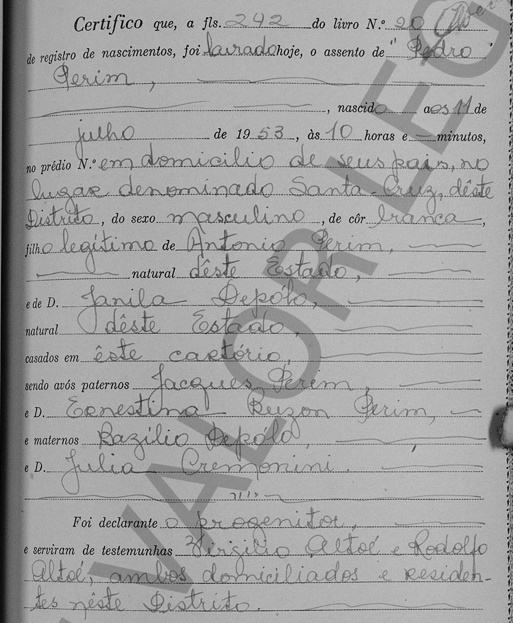 Certifico que, a fls. 242 do livro N.º 20
de registro de nascimentos, foi lavrado hoje, o assento de "Pedro
Perim,
, nascido aos 11 de
julho de 1953, às 10 horas e — minutos,
no prédio N.º em domicilio de seus pais, no
lugar denominado Santa-Cruz, dêste
Distrito, do sexo masculino, de côr branca,
filho legítimo de Antonio Perim,
natural dêste Estado,
e de D. Janila Depólo,
natural dêste Estado,
casados em êste cartório,
sendo avós paternos Jacques Perim,
e D. Ernestina Ruzon Perim,
e maternos Bazílio Depólo,
e D. Julia Cremonini.
Foi declarante o progenitor,
e serviram de testemunhas Virgilio Altoé e Rodolfo
Altoé, ambos domiciliados e residen-
tes nêste Distrito.
VALOR LEG